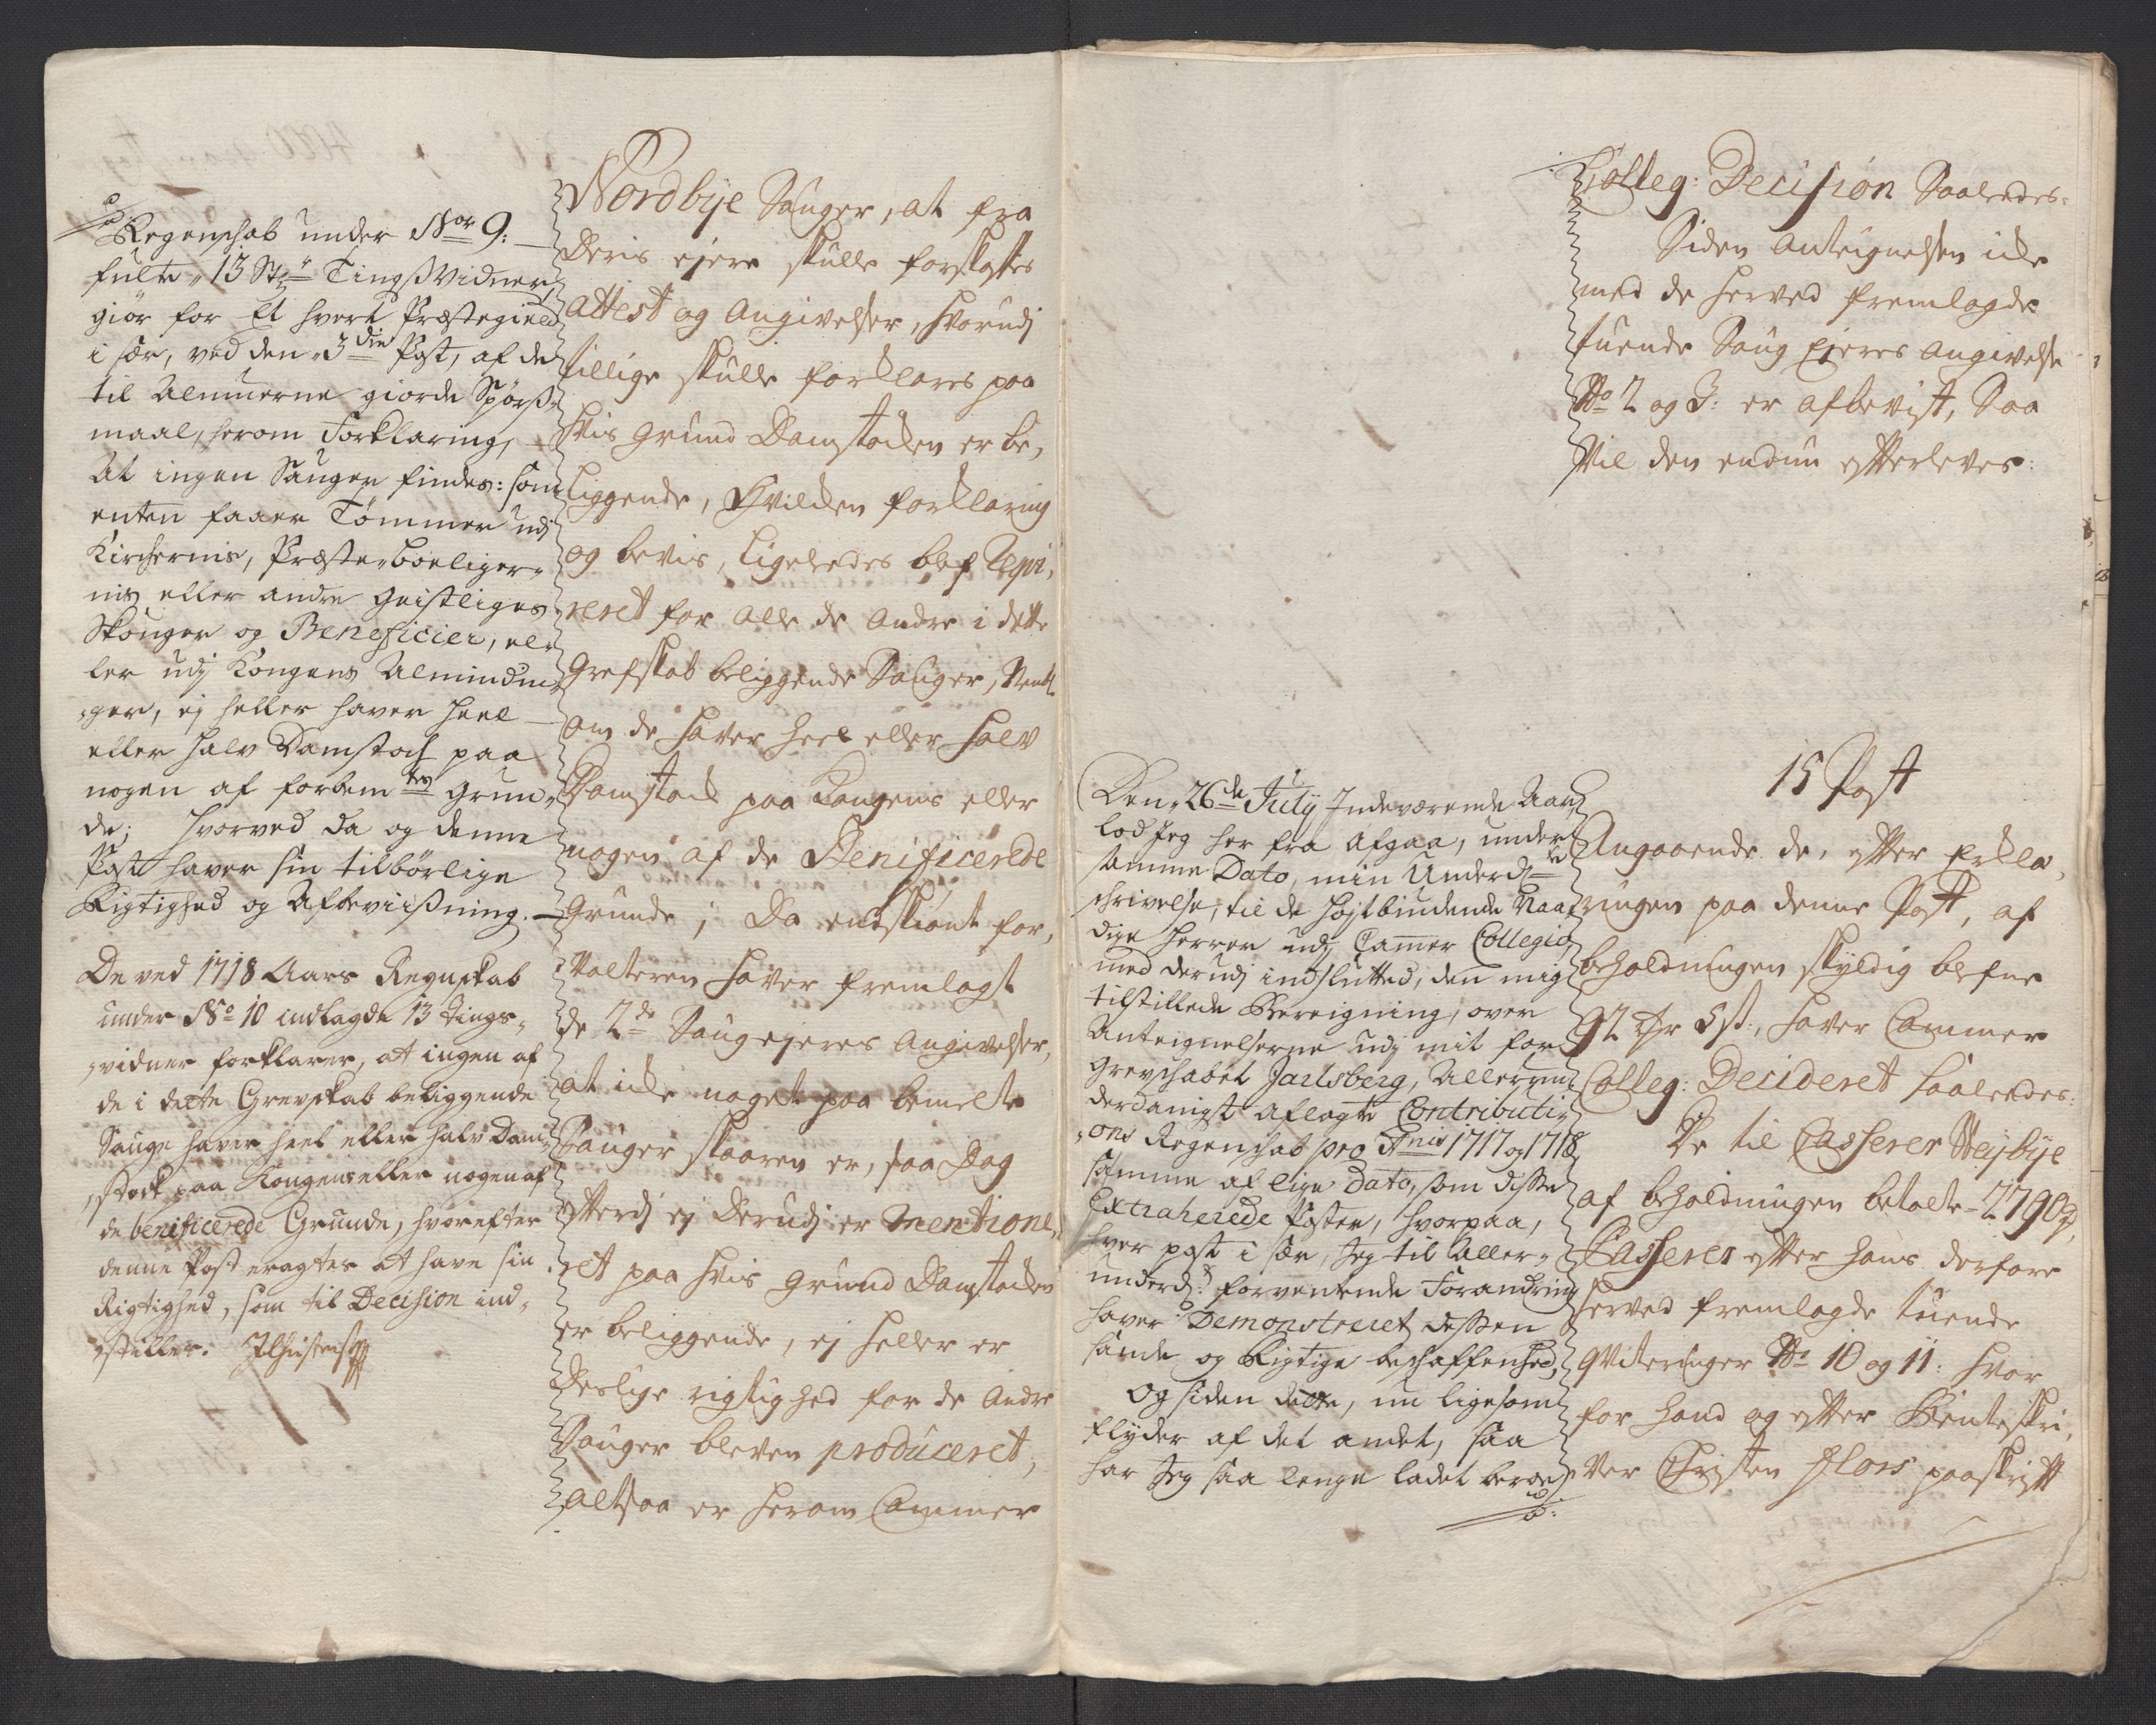 Regenskab under Nor 9:
fulte 13 Stkr TingsVidner,
giör for Et hvert Præstegield
i sær, ved den 3die Post, af de
til Almuerne giorde Spörs-
maal, herom Forklaring,
At ingen Sauger findes: som
enten faaer Tömmer udj
Kirchernis, Præste-boeliger-
nis eller andre Geistliges
Skouger og Beneficier, el-
ler udj Kongens Almindin-
ger, ej heller haver heel
eller halv Damstoch paa
nogen af forbemte Grun-
de; hvorved da og denne
Post haver sin tilbörlige
Rigtighed og Afbeviisning.
De ved 1718 Aars Regnskab
under No 10 indlagde 13 tings-
vidner forklarer, at ingen af
de i dette Grevskab beliggende
Sauge haver heel eller halv Dam-
stock paa Kongens eller nogen af
de benificerede Grunde, hvorefter
denne Post eragtes at have sin
Rigtighed, som til Decision ind-
stilles.
Nordbye Sauger, at fra
Deris ejere skulle forskaffes
Attest og Angivelser, hvorudj
tillige skulle forklares paa
hvis grund Damstocken er be-
liggende, Hvilken forklaring
og bevis, ligeledes blef Reqvi-
reret for alle de andre i dette
Grefskab beliggende Sauger, Nembl.
om de haver heel eller halv
Damstock paa Kongens eller
nogen af de Benificerede
Grunde; Da endskiönt for-
Valteren haver fremlagt
de 2de Saugejeres Angivelser,
at icke noget paa bemelte
Sauger skaaren er, saa Dog
efterdj ej derudj er Mentione-
ret paa hvis Grund Damstocken
er beliggende, ej heller er
deslige rigtighed for de andre
Sauger bleven produceret,
altsaa er herom Cammer
Colleg: Decision Saaledes:
Siden Anteignelsen icke
med de herved fremlagde
tuende Saug Ejeres Angivelse
No 2 og 3: er afbevist, Saa
Vil den endnu efterleves:
Den 26de July Indeværende Aar
lod Jeg her fra afgaa, under
samme Dato, min Underd:te
schrivelse, til de Højtbiudende Naa-
dige Herrer udj Cammer Collegio
med derudj indslutted, den mig
tilstillede Beregning, over
Anteignelserne udj mit for
Grevschabet Jarlsberg, Allerun-
derdanigst aflagte Contributi-
ons Regenschab pro Anis 1717 og 1718
samme af lige Dato, som disse
Extraherede Poster, hvorpaa,
hver post i sær, Jeg til Aller-
underd: forventende Forandring
haver Demonstreret dessen
sande og Rigtige beschaffenhed,
Og siden dette, nu ligesom
flyder af det andet, saa
har Jeg saa lenge ladet beroe
15 Post
Angaaende de, efter Erkla-
ringen paa denne Post, af
beholdningen skyldig blefne
92 dr 5 s:, haver Cammer
Colleg: Decideret saaledes:
De til Casserer Wejbye
af beholdningen betalte 2790 dr,
Passerer efter hans derfore
herved fremlagde tuende
Qviteringer No 10 og 11: hvor
for hand og efter Renteskri-
Ver Christen Flors paaskrift